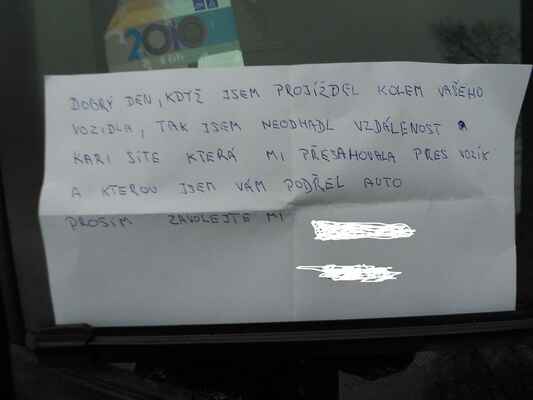 2010
DOBRÝ DEN, KDYŽ JSEM PROJÍŽDĚL KOLEM VAŠEHO
VOZIDLA, TAK JSEM NEODHADL VZDÁLENOST
KARI SÍTĚ KTERÁ MI PŘESAHOVALA PŘES VOZÍK
A KTEROU JSEM VÁM PODŘEL AUTO
PROSÍM ZAVOLEJTE MI